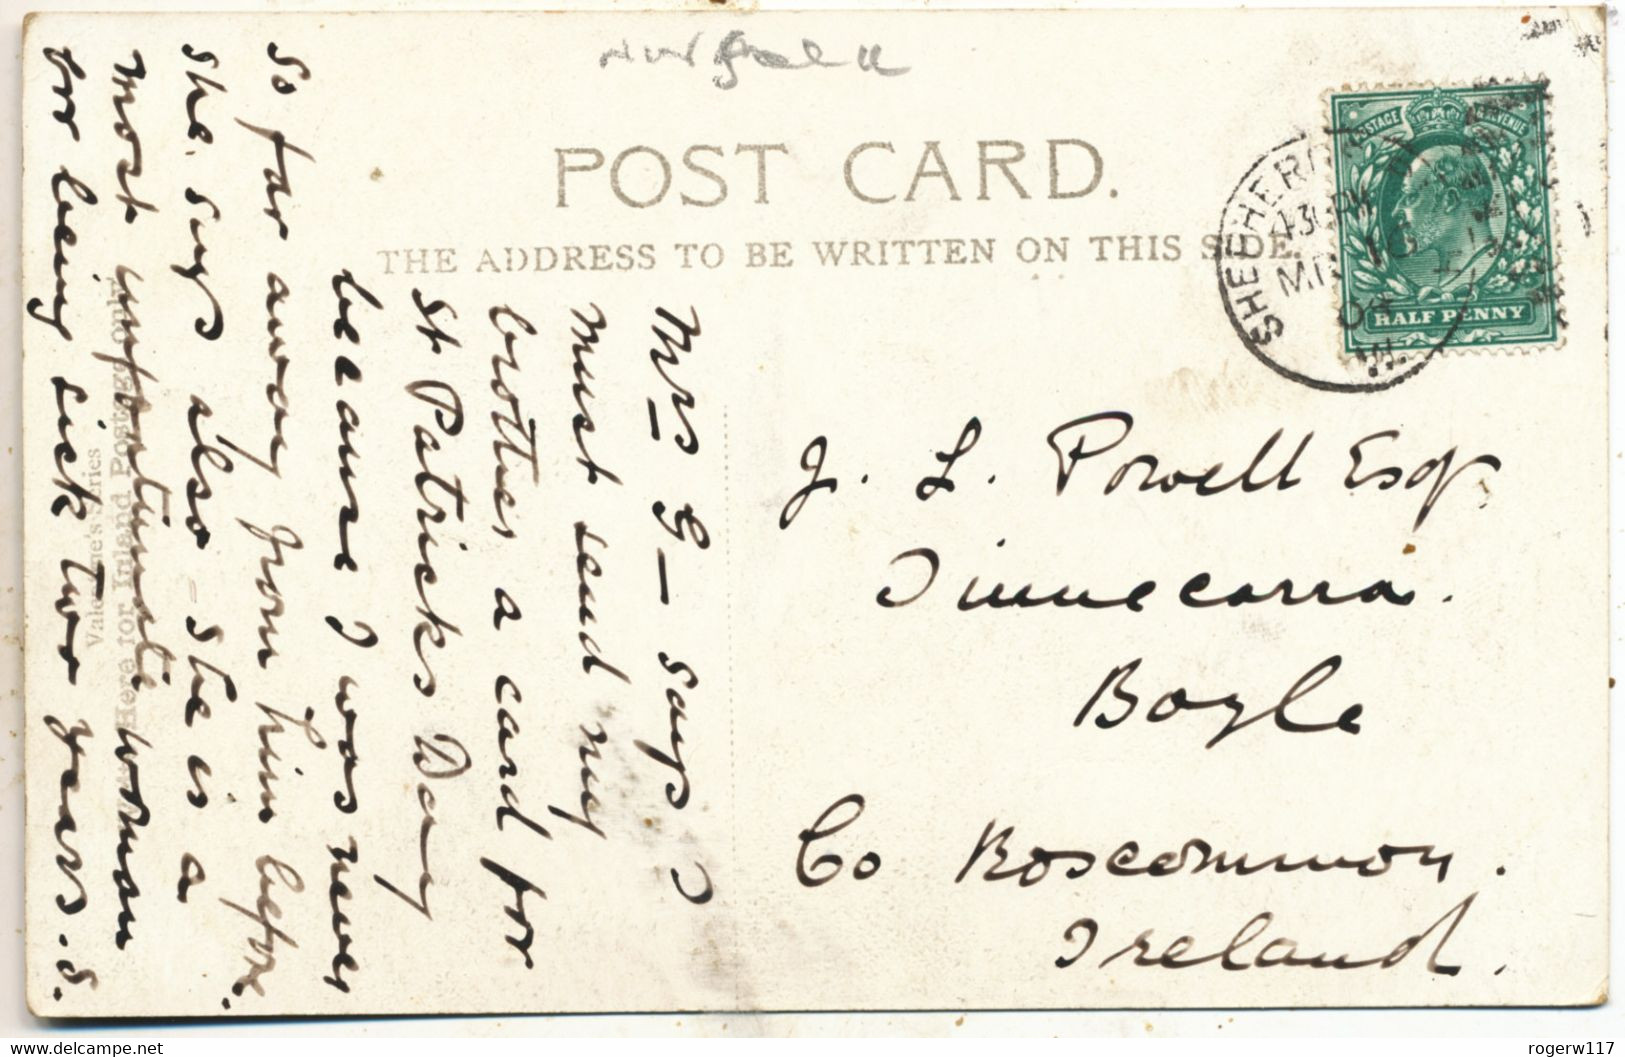 POST CARD.
THE ADDRESS TO BE WRITTEN ON THIS SIDE.
POSTAGE REVENUE
HALF PENNY
430PM
MR 16
Mrs G — says I
must send my
brother a card for
St Patricks Day
because I was never
so far away from him before.
She says also - she is a
most unfortunate woman
for being sick two years. S.
J. L. Powell Esqr
Boyle
Co Roscommon.
Ireland.
Valentine's Series
Here for Inland Postage only
delcampe.net
rogerw117